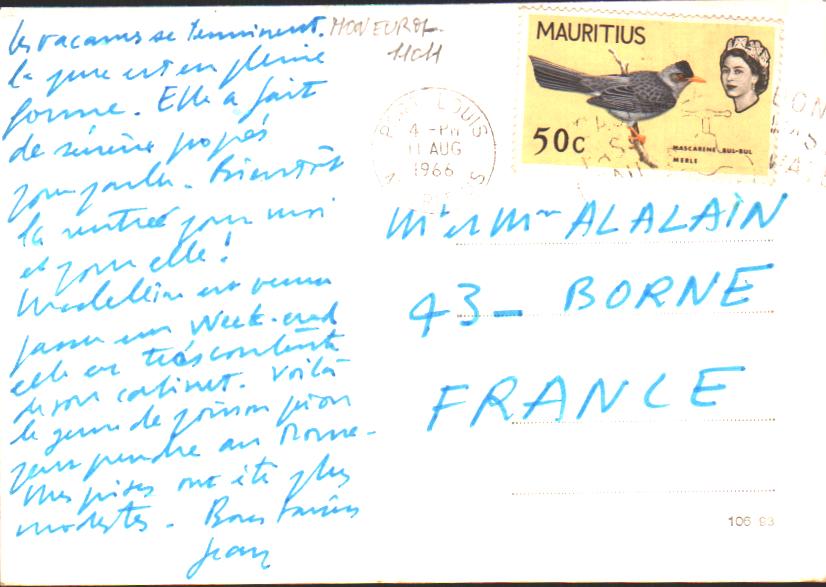 les vacances se terminent.
la gure est en pleine
forme. Elle a fait
de sérieux progrès
pour parler. Bientôt
la rentrée pour moi
et pour elle !
Madeleine est venue
passer un week-end
elle est très contente
de son cabinet. Voilà
le genre de poisson que l'on
peut prendre au Morne -
Mes prises ont été plus
modestes - Bons baisers
Jean
MON EUROL.
11CH
MAURITIUS
50c
MASCARENE BUL-BUL
MERLE
PORT LOUIS
4 - PM
11 AUG
1966
MAURITIUS
Mr et Mme ALALAIN
43 - BORNE
FRANCE
106 93